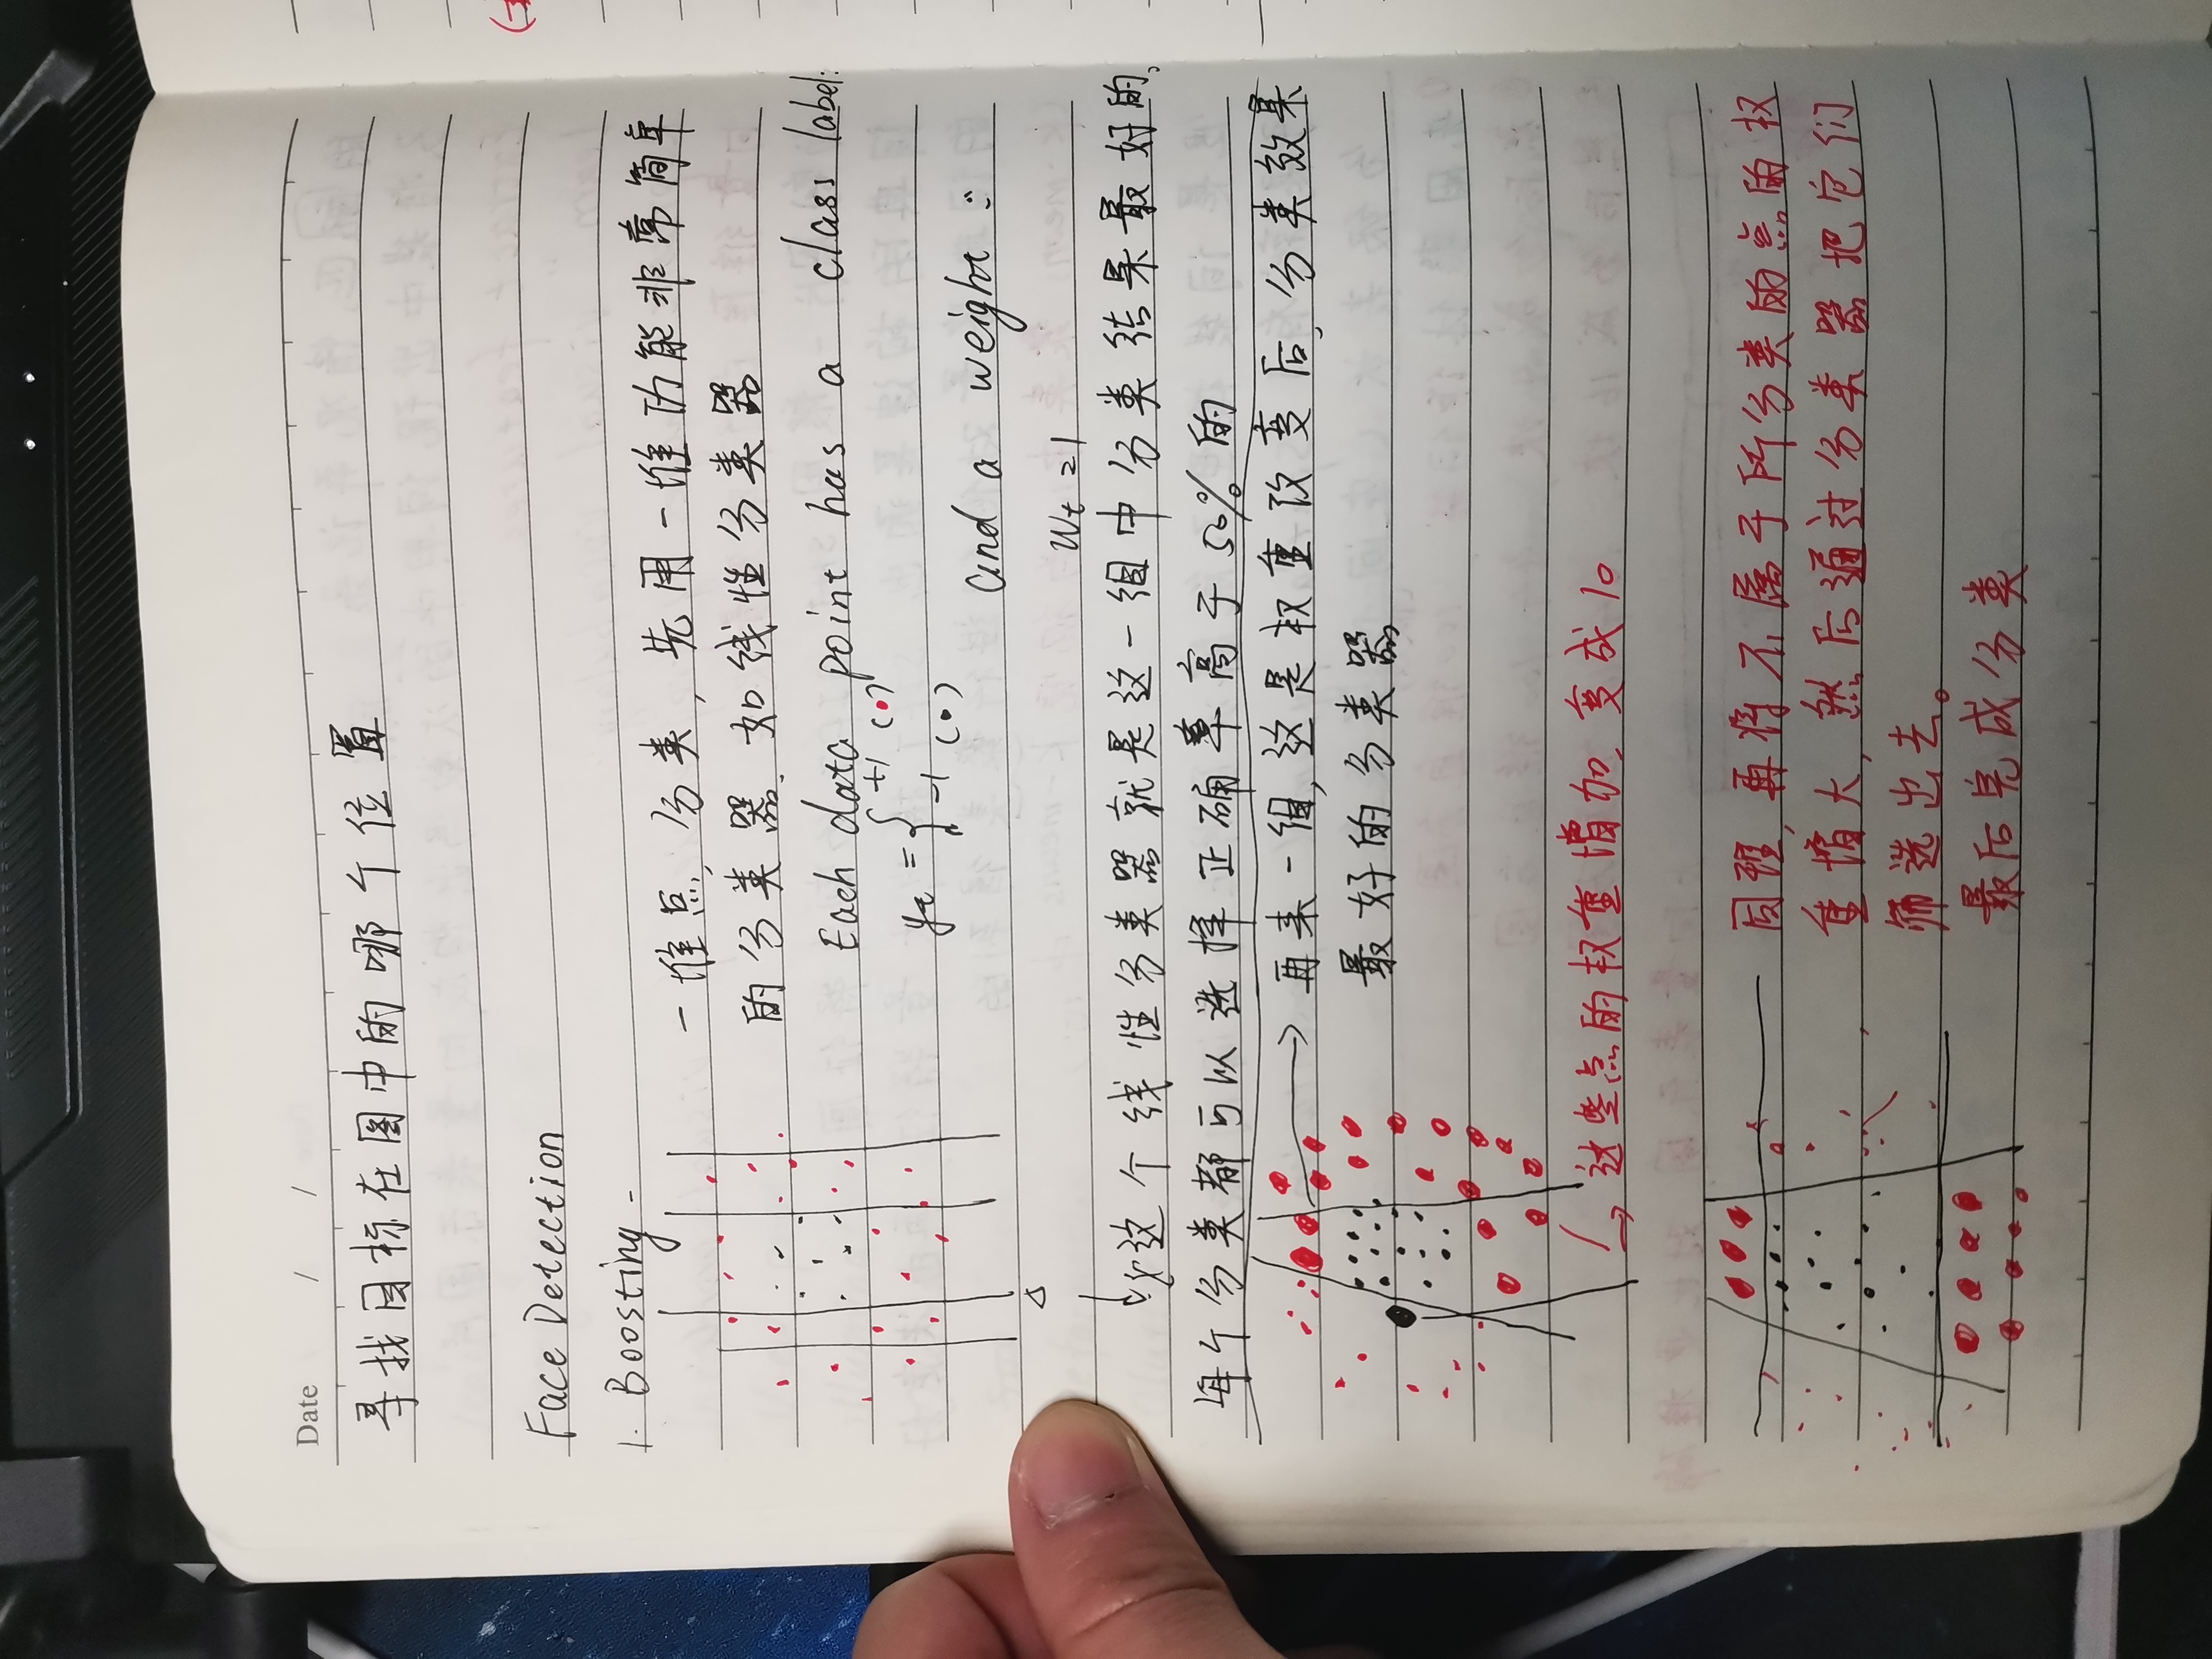 Date / /
寻找目标在图中的哪个位置
Face Detection
1. Boosting
一堆点,分类,先用一堆功能非常简单
的分类器.如线性分类器
Each data point has a class label:
yt = { +1 (•)
-1 (•)
and a weight:
wt = 1
这个线性分类器就是这一组中分类结果最好的,
每个分类都可以选择正确率高于50%的
→ 再来一组,这是权重改变后,分类效果
最好的分类器
→ 这些点的权重增加,变成10
同理,再将不属于所分类的点的权
重增大,然后通过分类器把它们
筛选出去。
最后完成分类